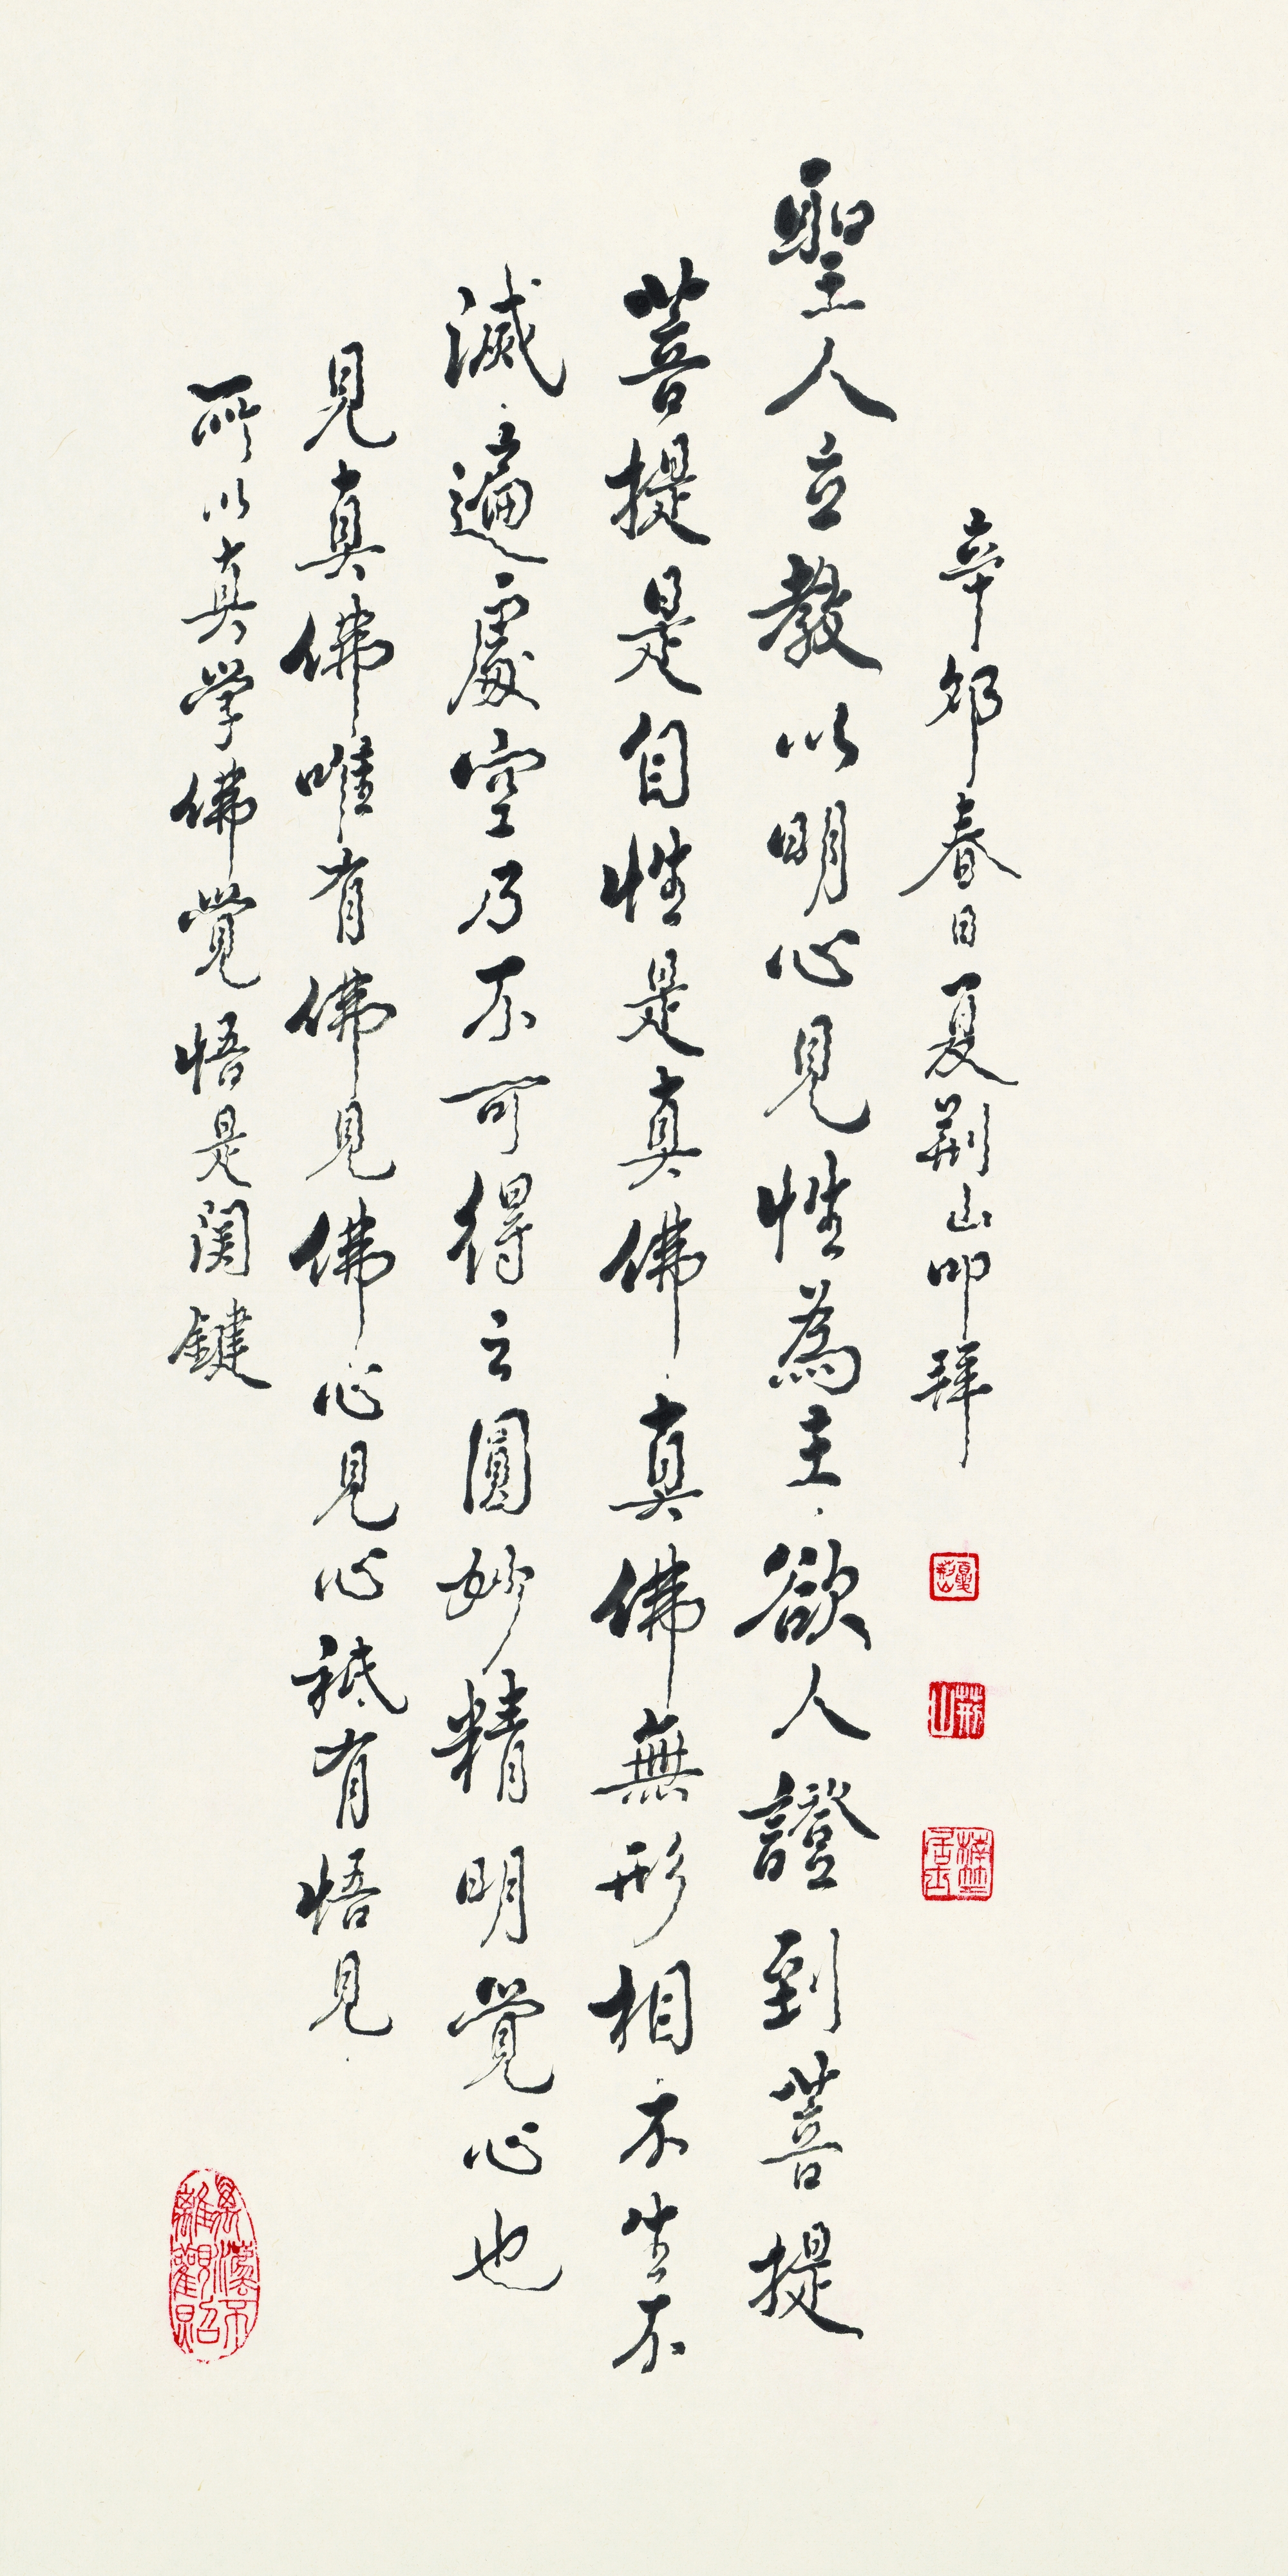 辛卯春日夏荆山叩拜
聖人立教以明心見性為主欲人證到菩提
菩提是自性是真佛真佛無形相不生不
滅遍處空乃不可得之圓妙精明覺心也
見真佛唯有佛見佛心見心祗有悟見
所以真学佛覺悟是関鍵
荆山